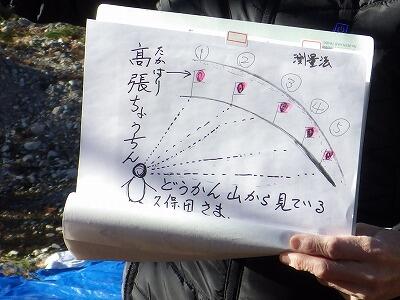 測量法
① ② ③ ④ ⑤
たかはり
高張ちょうちん
どうかん山から見ている
久保田さま.